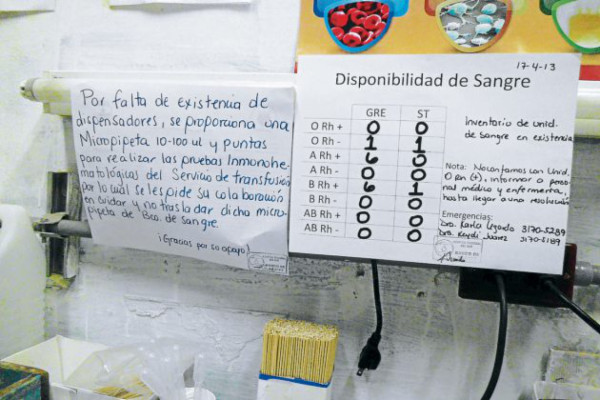 Por falta de existencia de
dispensadores, se proporciona una
Micropipeta 10-100 ul y puntas
para realizar las pruebas Inmunohe-
matológicas del Servicio de transfusión
por lo cual se les pide su colaboración
en cuidar y no trasladar dicha micro-
pipeta de Bco. de Sangre.
¡Gracias por su apoyo!
17-4-13
Disponibilidad de Sangre
GRE ST
O Rh + 0 0
O Rh - 1 1
A Rh + 6 0
A Rh - 0 0
B Rh + 6 1
B Rh - 0 0
AB Rh + 0 0
AB Rh - 0 0
Inventario de unid.
de Sangre en existencia
Nota: No contamos con Unid.
O Rh (+), informar a perso-
nal médico y enfermería,
hasta llegar a una resolución
Emergencias:
Dra. Karla 3170-5289
Dra. Juarez 3170-5189